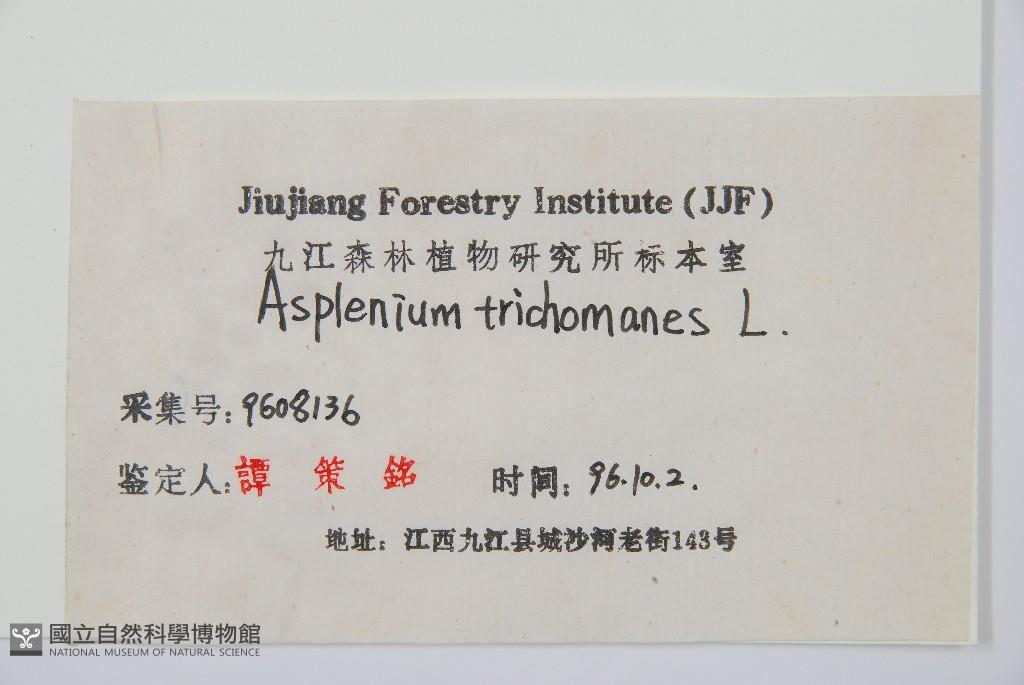 Jiujiang Forestry Institute (JJF)
九江森林植物研究所标本室
Asplenium trichomanes L.
采集号: 9608136
鉴定人: 譚 策 銘 时间: 96.10.2.
地址: 江西九江县城沙河老街143号
國立自然科學博物館
NATIONAL MUSEUM OF NATURAL SCIENCE